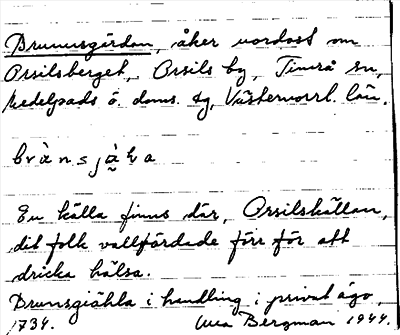 Brunnsgärdan, åker nordost om
Orsilsberget, Orsils by, Timrå sn,
Medelpads ö. doms. tg, Västernorrl. län.
En källa finns där, Orsilskällan,
dit folk vallfärdade förr för att
dricka hälsa.
Brunsgiähla i handling i privat ägo,
1734. Bergman 1944.